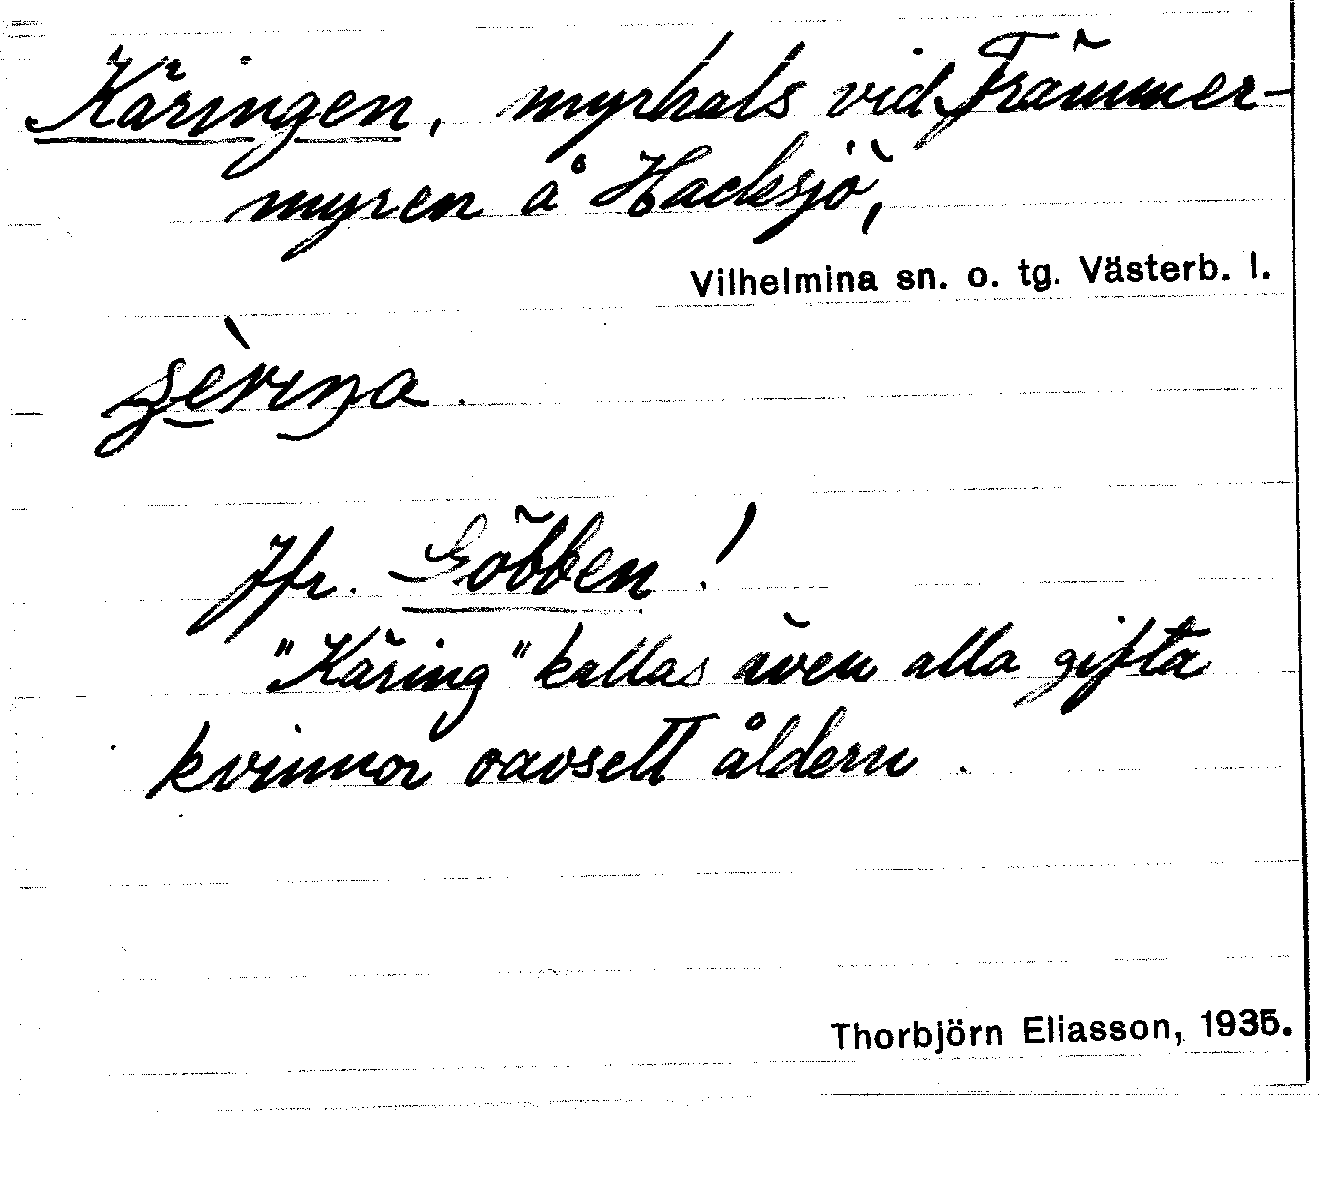 Käringen, myrhals vid Främmer-
myren å Hacksjö,
Vilhelmina sn. o. tg. Västerb. l.
Jfr. Göbben!
"Käring" kallas även alla gifta
kvinnor oavsett åldern.
Thorbjörn Eliasson, 1935.